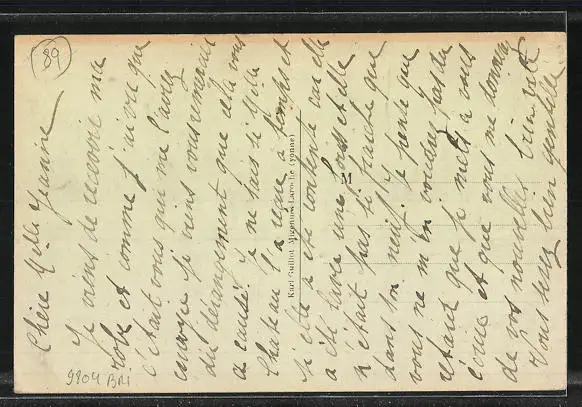 89
Chère Melle Jeanine
Je viens de recevoir ma
robe et comme j'ai vu que
c'était vous qui me l'avez
envoyé je viens vous remercier
du dérangement que cela vous
a causé. Je ne sais si Mlle
Chateau l'a reçue a temps et
si elle a été contente car elle
a été lavée une fois et elle
n'était pas si fraiche que
dans son neuf. Je pense que
vous ne m'en voudrez pas du
retard que je mets a vous
écrire et que vous me donnerez
de vos nouvelles bien tôt
Vous serez bien gentille
Karl Guillot, Migennes-Laroche (Yonne)
M
9904 BRI